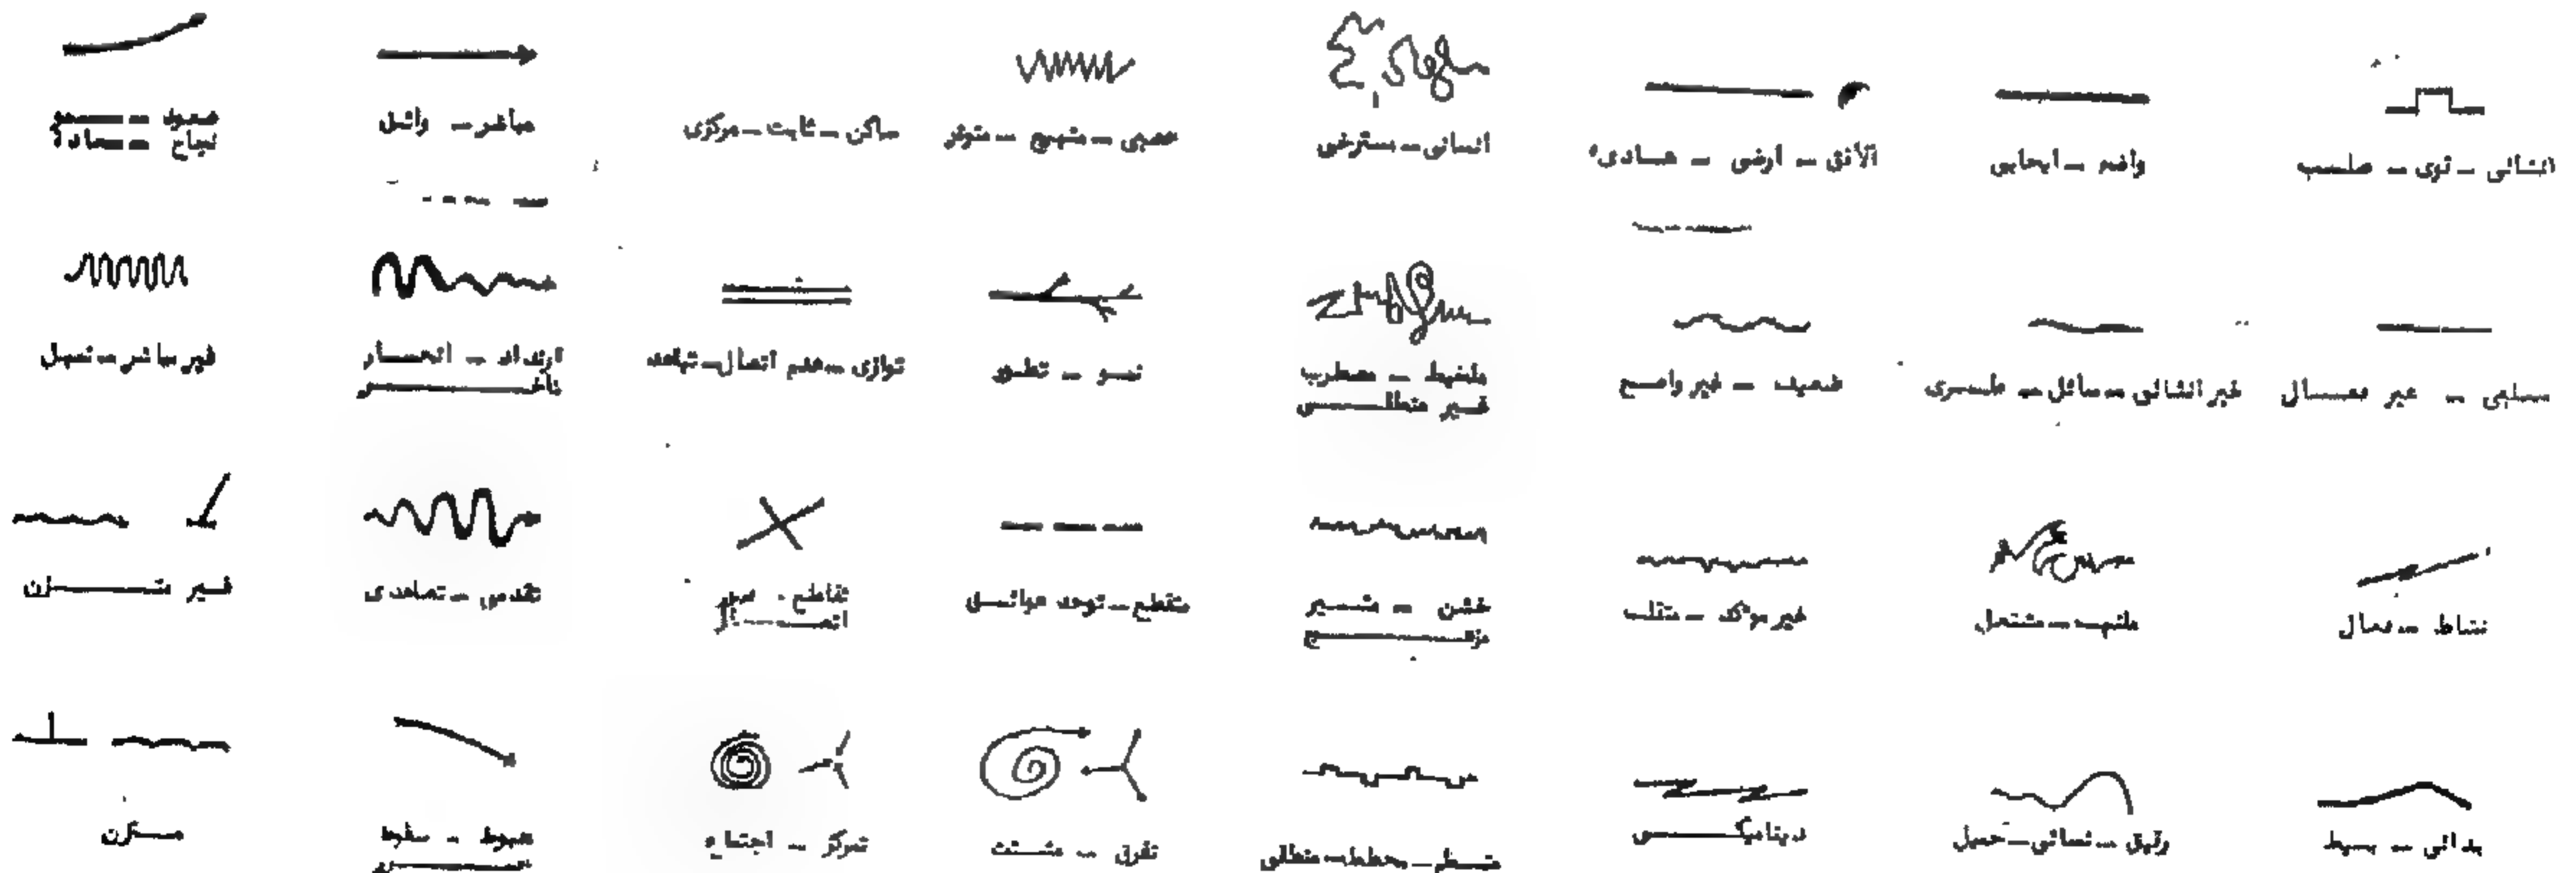 انشائى - قوى - صلب
واضح - ايجابى
الأفق - أرضى - هادىء
انسانى - مسترخى
عصبى - متهيج - متوتر
ساكن - ثابت - مركزى
مباشر - واثق
صعود - سمو
نجاح - سعادة
سلبى - غير فعال
غير انشائى - سائل - طرى
ضعيف - غير واضح
مضطرب
غير منطقى
نمو - تطور
توازى - عدم اتصال - تباعد
ارتداد - انحسار
تأخر
غير مباشر - ثقيل
نشاط - فعال
ملتهب - مشتعل
غير مؤكد - متقلب
خشن - مثير
مزعج
متقطع - توجد عوائق
تقاطع -
اتصال
تقدمى - تصاعدى
غير متزن
بدائى - بسيط
رقيق - نسائى - جميل
ديناميكى
منتظر - مخطط - منطقى
تفرق - مشتت
تمركز - اجتماع
هبوط - سقوط
متزن